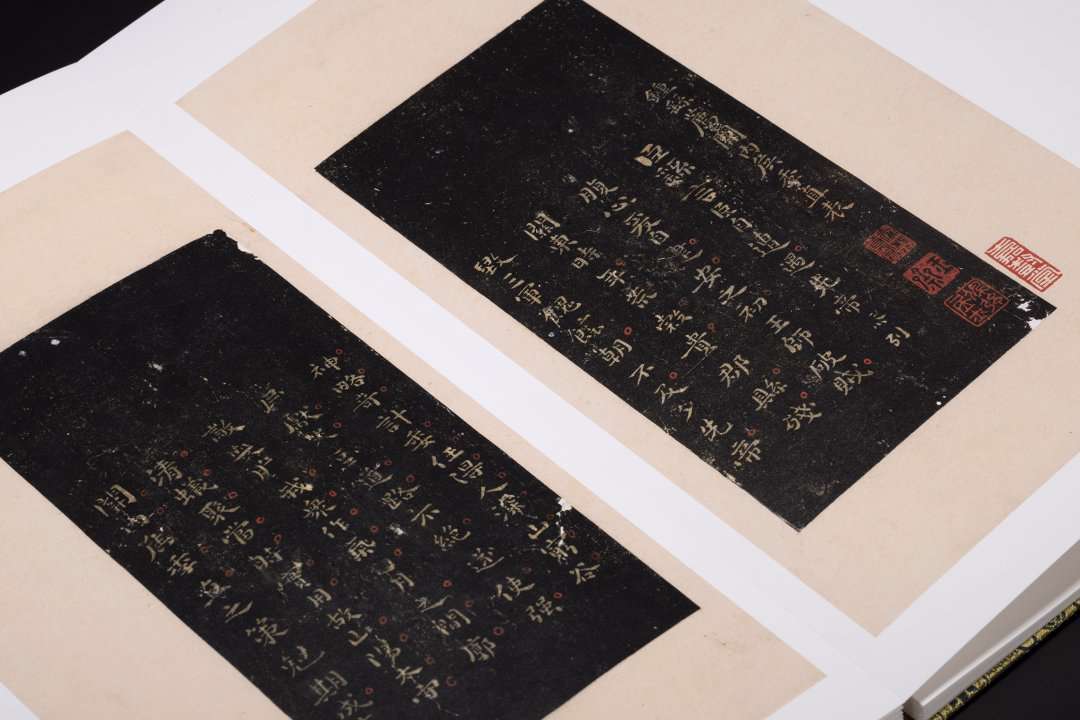 鍾繇薦關內侯季直表
臣繇言臣自遭遇先帝忝列
腹心爰自建安之初王師破賊
關東時年荒榖貴郡縣殘
毀三軍餽饟朝不及夕先帝
神略奇計委任得人深山窮谷
民獻米豆道路不絕遂使强
敵喪膽我衆作氣旬月之間廓
清蟻聚當時實用故山陽太守
關內侯季直之策剋期成